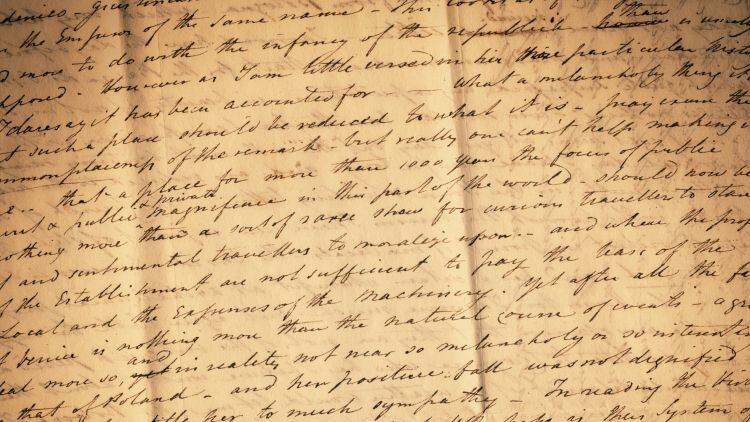 of the same name - This looks as if
the Emperor of the Infancy of the republick than is usually
more to do with the infancy of the
However as I am little versed in her particular hist
I dare say it has been accounted for - what a melancholy thing
such a place should be reduced to what it is - pray excuse the
commonplaceness of the remark - but really one can't help making it
that a place for more than 1000 years the focus of public
& public & private magnificence in this part of the world - should now be
nothing more than a sort of raree show for curious travellers to stare
and sentimental travellers to moralize upon - and where the prof
of the Establishment are not sufficient to pay the Lease of the
Local and the Expenses of the Machinery. Yet after all the fa
of Venice is nothing more than the natural course of events - a gr
deal more so, and yet in reality not near so melancholy or so interesti
that of Poland - and her positive fall was not dignified
her to much sympathy - In reading the
is this System of